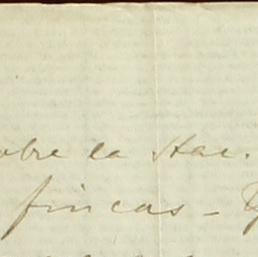 obre la Hac.
fincas -